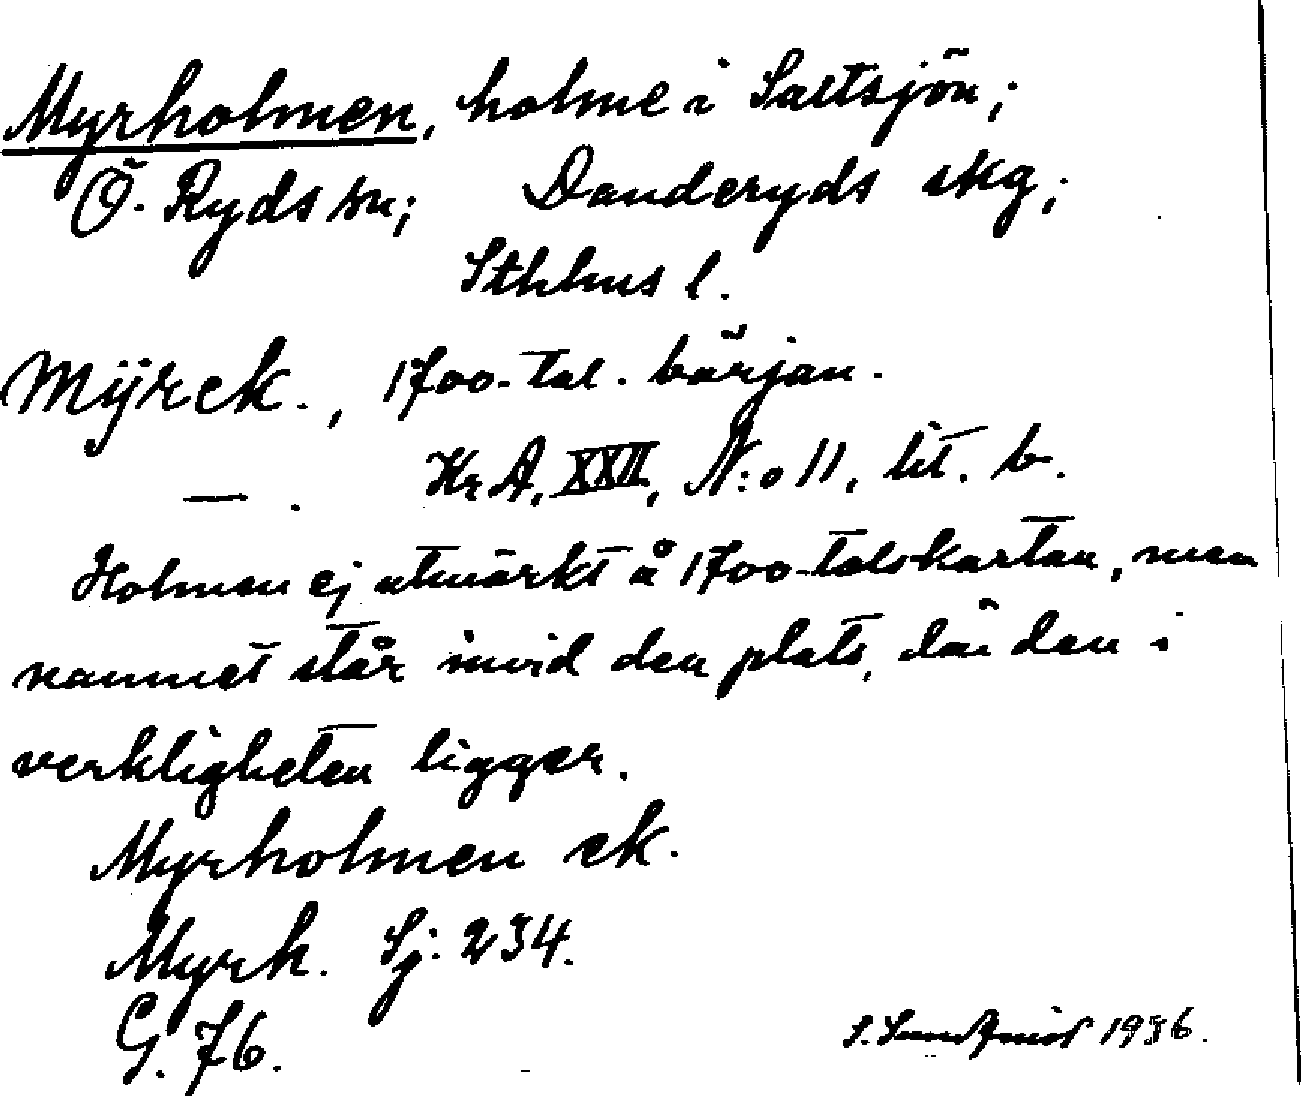 Myrholmen, holme i Saltsjön;
Ö. Ryds sn; Danderyds skg;
Sthlms l.
Mÿrek., 1700-tal. början.
— . Kr A, XXII, N:o 11, lit. b.
Holmen ej utmärkt å 1700-talskartan, men
namnet står invid den plats, där den i
verkligheten ligger.
Myrholmen ek.
Myrh. Sj. 234.
G. 76.
S. 1936.